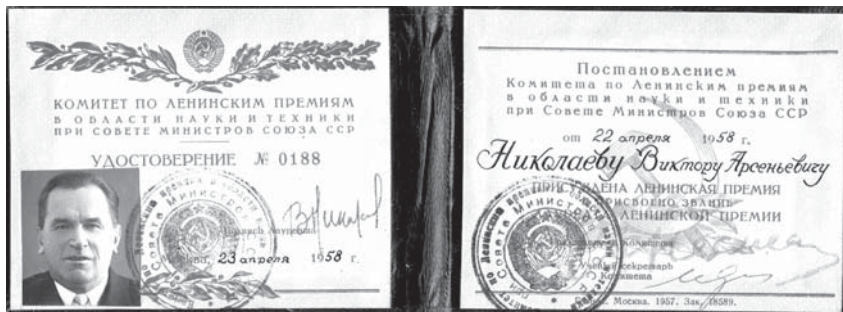 КОМИТЕТ ПО ЛЕНИНСКИМ ПРЕМИЯМ
В ОБЛАСТИ НАУКИ И ТЕХНИКИ
ПРИ СОВЕТЕ МИНИСТРОВ СОЮЗА ССР
УДОСТОВЕРЕНИЕ № 0188
Подпись лауреата
Москва, 23 апреля 1958 г.
Постановлением
Комитета по Ленинским премиям
в области науки и техники
при Совете Министров Союза ССР
от 22 апреля 1958 г.
Николаеву Виктору Арсеньевичу
ПРИСУЖДЕНА ЛЕНИНСКАЯ ПРЕМИЯ
ПРИСВОЕНО ЗВАНИЕ
ЛЕНИНСКОЙ ПРЕМИИ
Комитета
Ученый секретарь
Комитета
Москва. 1957. Зак. 18589.